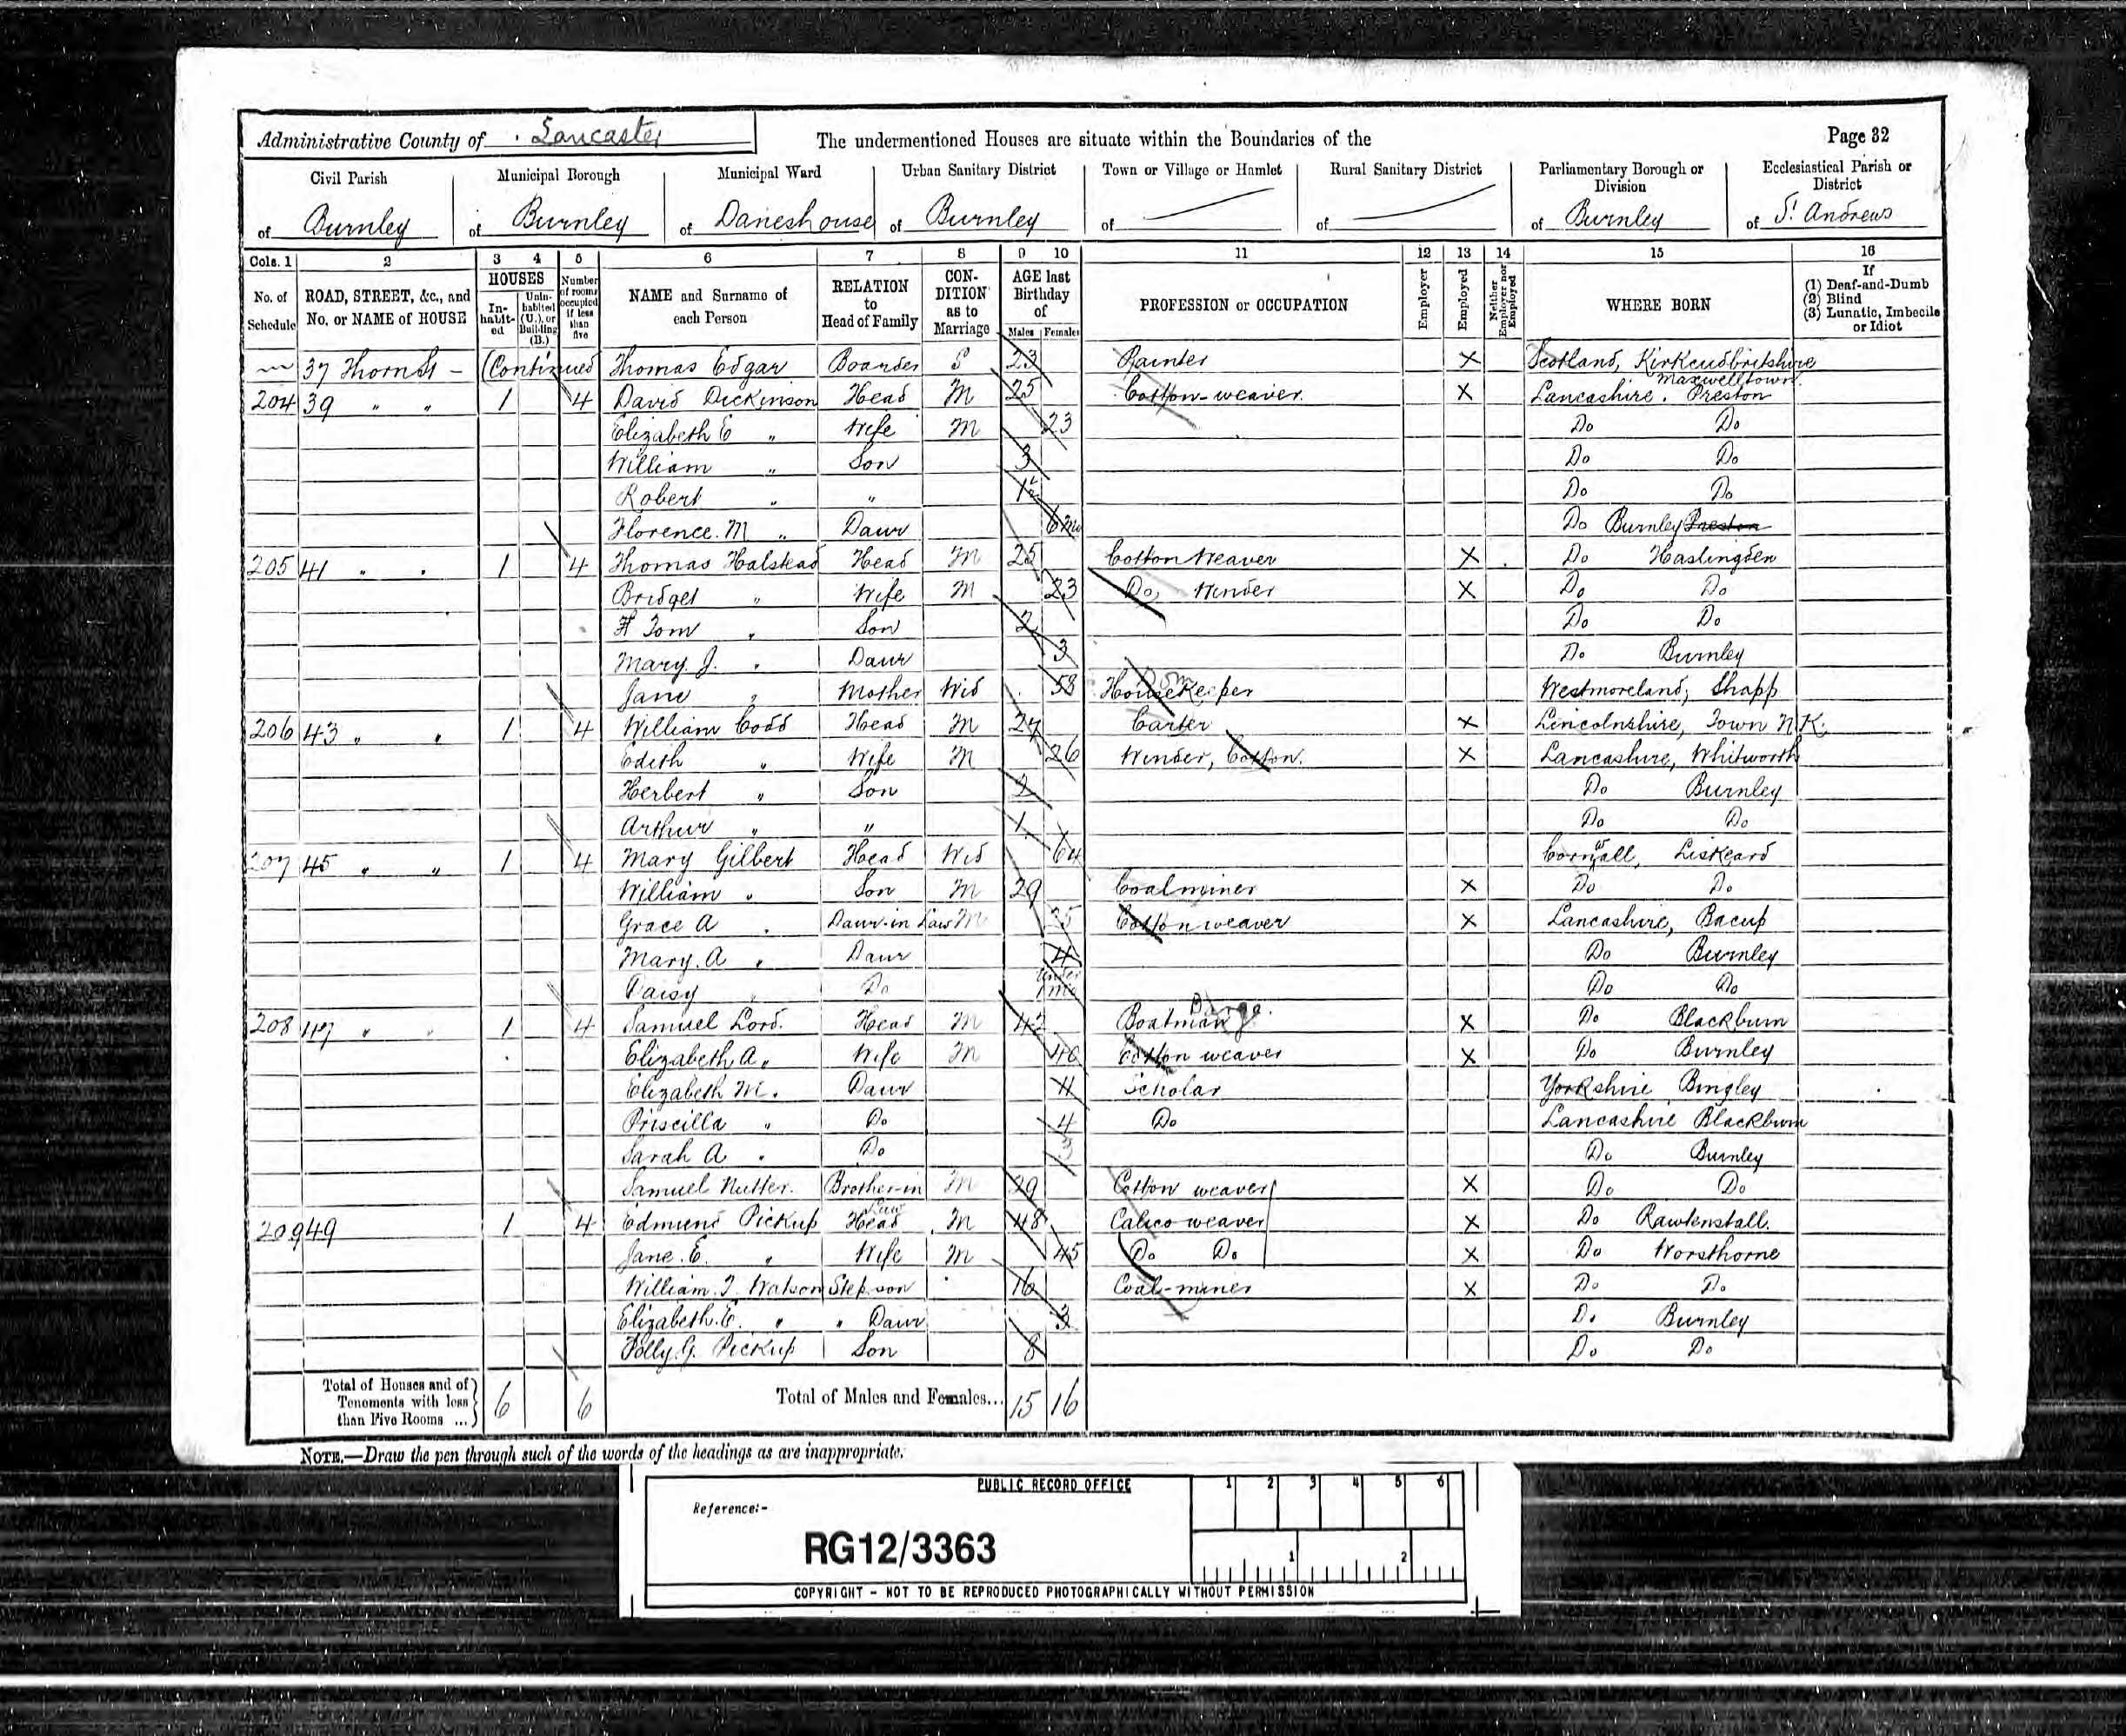 Administrative County of Lancaster The undermentioned Houses are situate within the Boundaries of the Page 32
Civil Parish Municipal Borough Municipal Ward Urban Sanitary District Town or Village or Hamlet Rural Sanitary District Parliamentary Borough or Division Ecclesiastical Parish or District
of Burnley of Burnley of Daneshouse of Burnley of of of Burnley of St Andrews
Cols. 1 2 3 4 5 6 7 8 9 10 11 12 13 14 15 16
No. of Schedule ROAD, STREET, &c., and No. or NAME of HOUSE HOUSES Inhabited Uninhabited (U.), or Building (B.) Number of rooms occupied if less than five NAME and Surname of each Person RELATION to Head of Family CONDITION as to Marriage AGE last Birthday of Males Females PROFESSION or OCCUPATION Employer Employed Neither Employer nor Employed WHERE BORN If (1) Deaf-and-Dumb (2) Blind (3) Lunatic, Imbecile or Idiot
37 Thorn St - (Continued Thomas Edgar Boarder S 23 Painter X Scotland, Kirkcudbritshire Maxwelltown.
204 39 " " 1 4 David Dickinson Head M 25 Cotton-weaver. X Lancashire. Preston
Elizabeth E " Wife M 23 Do Do
William " Son 3 Do Do
Robert " " 1 Do Do
Florence. M " Daur 6 mo Do Burnley Preston
205 41 " " 1 4 Thomas Halstead Head M 25 Cotton Weaver X Do Haslingden
Bridget " Wife M 23 Do, Winder X Do Do
H Tom " Son 2 Do Do
Mary. J. " Daur 3 Do Burnley
Jane " Mother Wid 58 Housekeeper Dom Westmoreland, Shapp
206 43 " " 1 4 William Codd Head M 27 Carter X Lincolnshire, Town N.K.
Edith " Wife M 26 Winder, Cotton. X Lancashire, Whitworth
Herbert " Son 2 Do Burnley
Arthur " " 1 Do Do
207 45 " " 1 4 Mary Gilbert Head Wid 64 Cornwall, Liskeard
William " Son M 29 Coalminer X Do Do
Grace A " Daur-in Law M 25 Cotton weaver X Lancashire, Bacup
Mary. A " Daur 4 Do Burnley
Daisy " Do under 1 mo Do Do
208 47 " " 1 4 Samuel Lord. Head M 42 Boatman Barge. X Do Blackburn
Elizabeth A " Wife M 40 Cotton weaver X Do Burnley
Elizabeth M. " Daur 11 Scholar Yorkshire Bingley
Priscilla " Do 4 Do Lancashire Blackburn
Sarah A " Do 3 Do Burnley
Samuel Nutter. Brother-in Law M 29 Cotton weaver X Do Do
209 49 1 4 Edmund Pickup Head M 48 Calico weaver X Do Rawtenstall.
Jane. E. " Wife M 45 Do Do X Do Worsthorne
William. T. Watson Step son 16 Coal-miner X Do Do
Elizabeth. E. " " Daur 3 Do Burnley
G. Pickup Son 8 Do Do
Total of Houses and of Tenements with less than Five Rooms ... 6 6 Total of Males and Females... 15 16
NOTE.—Draw the pen through such of the words of the headings as are inappropriate.
PUBLIC RECORD OFFICE 1 2 3 4 5 6
Reference:-
RG12/3363
1 2
COPYRIGHT - NOT TO BE REPRODUCED PHOTOGRAPHICALLY WITHOUT PERMISSION